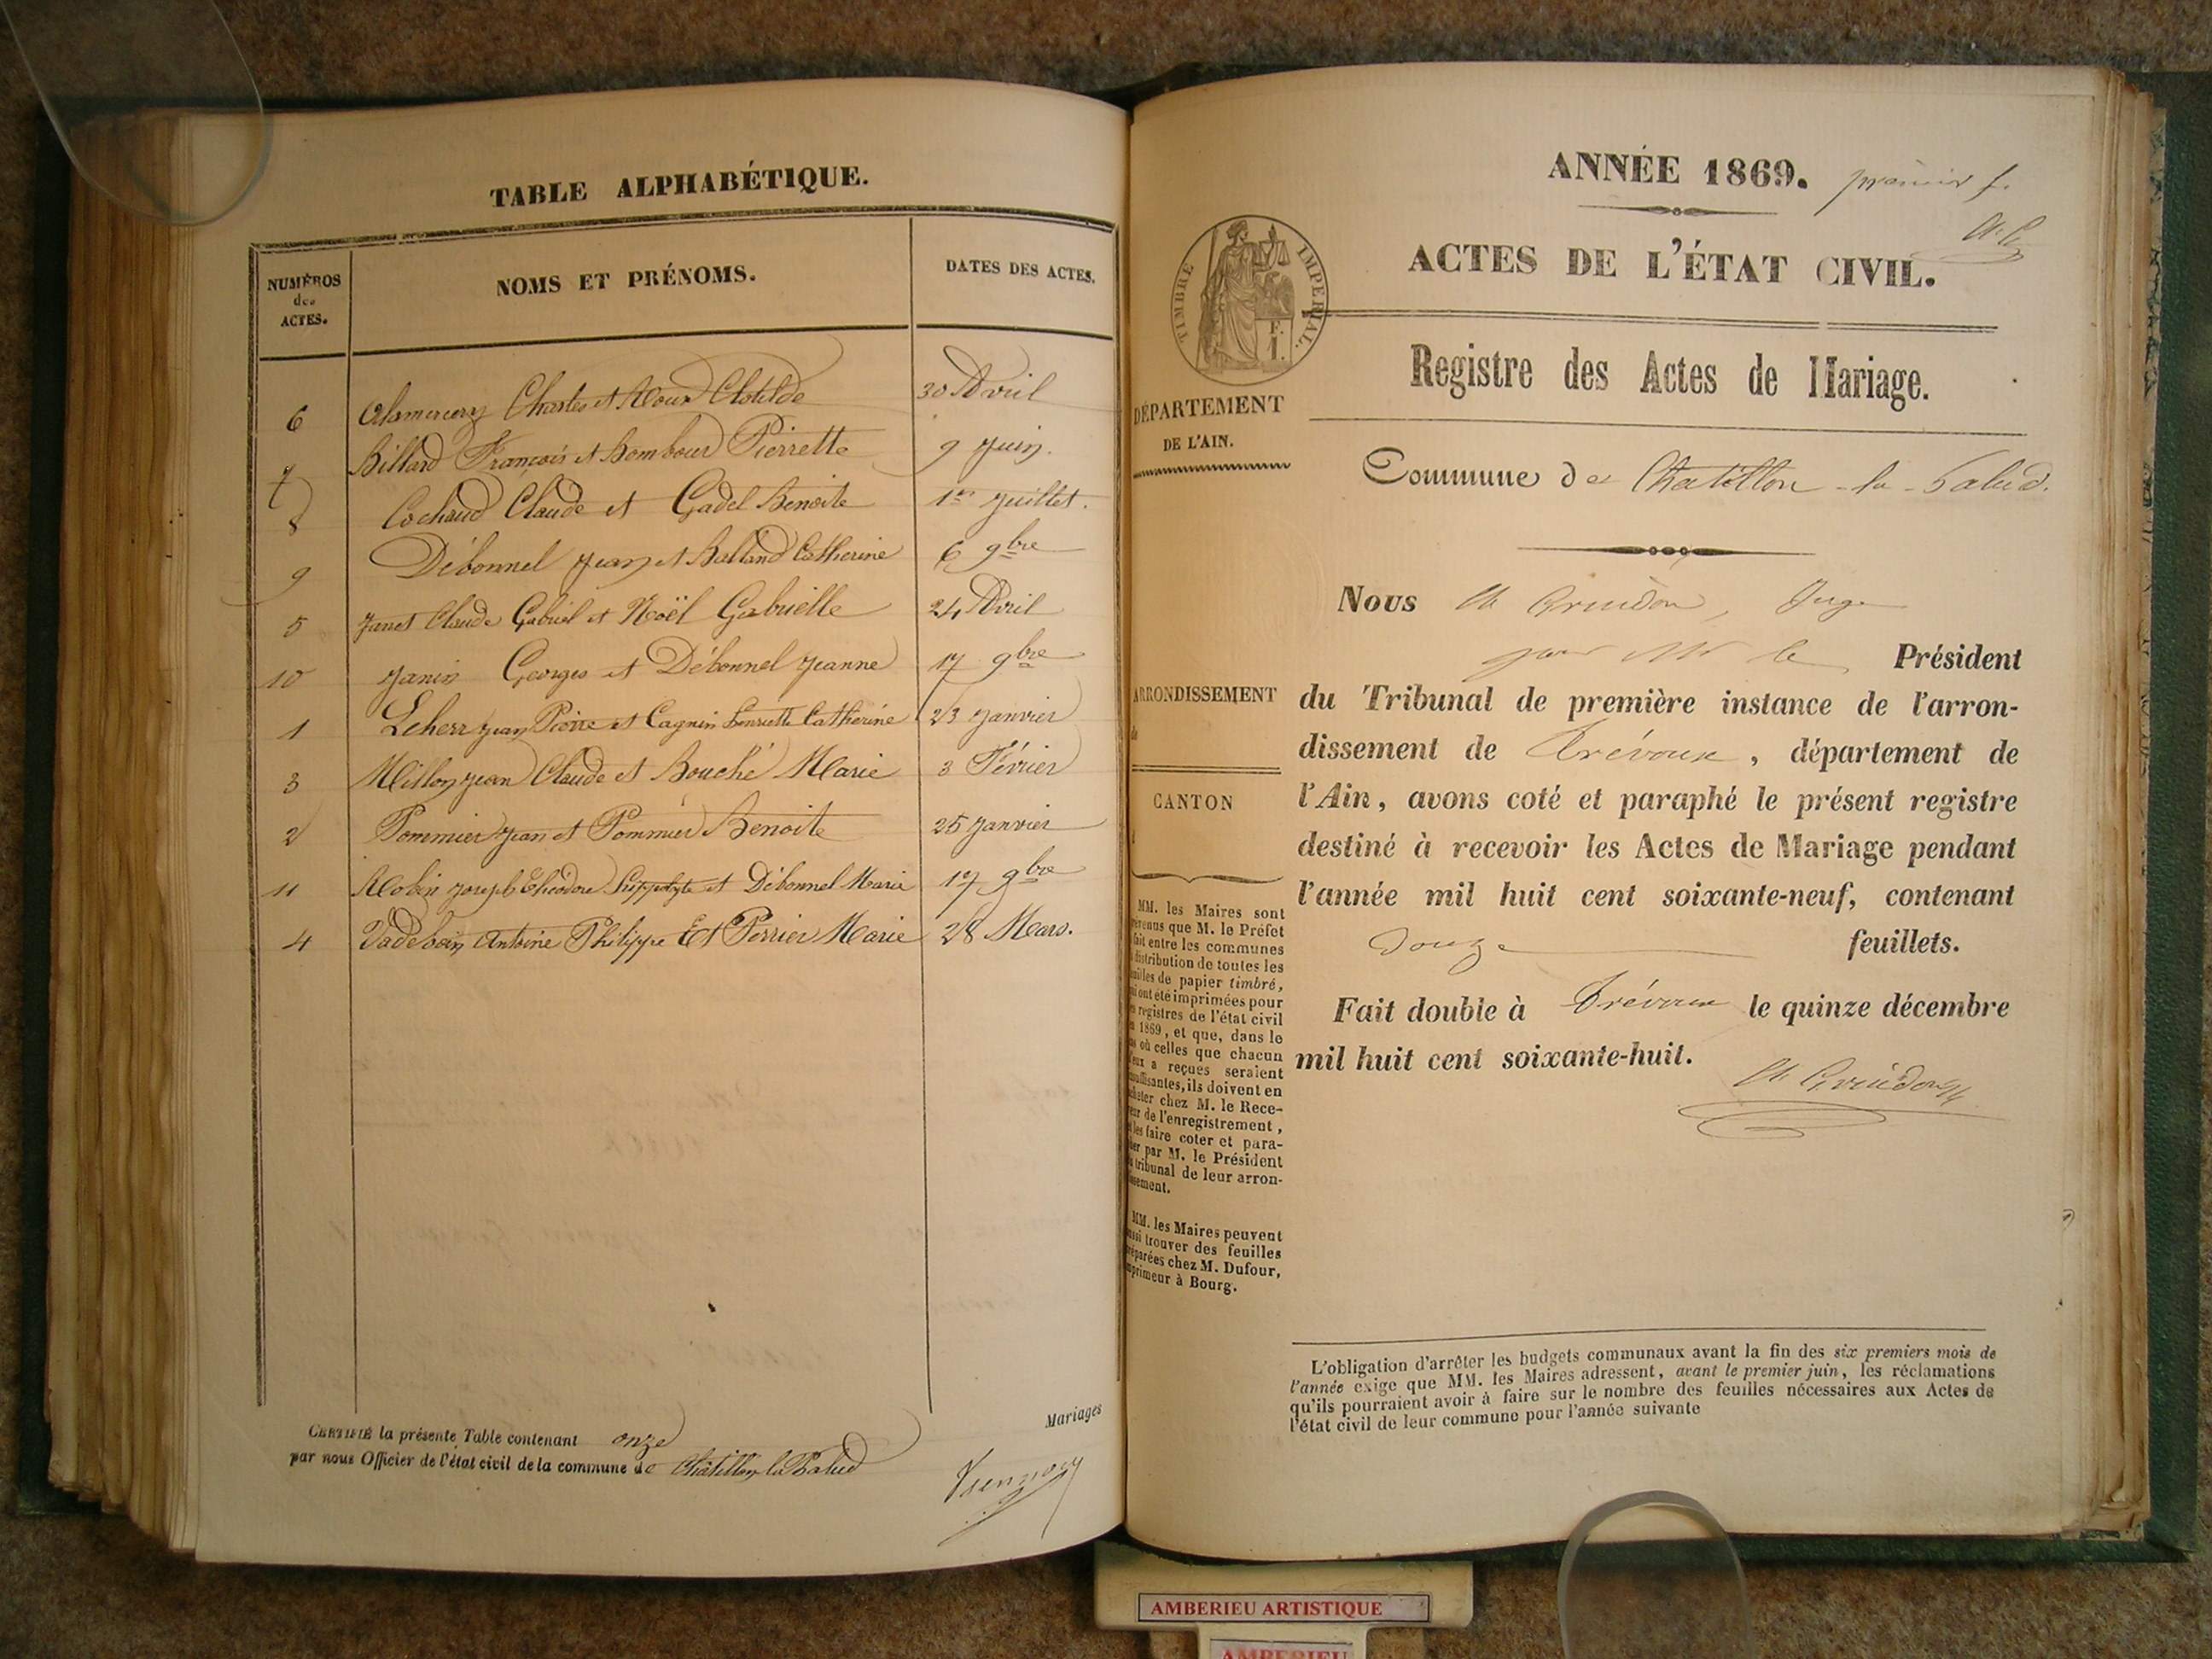 TABLE ALPHABÉTIQUE.
NUMÉROS
des
ACTES.
NOMS ET PRÉNOMS.
DATES DES ACTES.
6 Alamercery Charles et Roux Clotilde 30 Avril
7 Billard François et Bombour Pierrette 9 Juin.
8 Cochaud Claude et Gadel Benoite 1er Juillet.
9 Débonnel Jean et Balland Catherine 6 9bre
5 Janet Claude Gabriel et Noël Gabrielle 24 Avril
10 Janin Georges et Débonnel Jeanne 17 9bre
1 Leherr Jean Pierre et Cagnin Henriette Catherine 23 Janvier
3 Millon Jean Claude et Bouché Marie 3 Février
2 Pommier Jean et Pommier Benoite 25 Janvier
11 Robin Joseph Théodore Hippolyte et Débonnel Marie 17 9bre
4 Vadeboin Antoine Philippe Et Perrier Marie 28 Mars.
CERTIFIÉ la présente Table contenant onze Mariages
par nous Officier de l'état civil de la commune de Châtillon la Palud
ANNÉE 1869. premier f.
ACTES DE L'ÉTAT CIVIL.
TIMBRE IMPÉRIAL.
F.
1.
Registre des Actes de Mariage.
DÉPARTEMENT
DE L'AIN.
Commune de Chatillon-la-Palud.
Nous Ch Grindon, Juge
pour Mr le Président
ARRONDISSEMENT
de
du Tribunal de première instance de l'arron-
dissement de Trévoux, département de
CANTON
l'Ain, avons coté et paraphé le présent registre
destiné à recevoir les Actes de Mariage pendant
l'année mil huit cent soixante-neuf, contenant
douze feuillets.
Fait double à Trévoux le quinze décembre
mil huit cent soixante-huit.
Ch Grindon
MM. les Maires sont
prévenus que M. le Préfet
fait entre les communes
distribution de toutes les
feuilles de papier timbré,
qui ont été imprimées pour
registres de l'état civil
1869, et que, dans le
cas où celles que chacun
d'eux a reçues seraient
insuffisantes, ils doivent en
acheter chez M. le Rece-
veur de l'enregistrement,
les faire coter et para-
pher par M. le Président
tribunal de leur arron-
dissement.
MM. les Maires peuvent
aussi trouver des feuilles
préparées chez M. Dufour,
imprimeur à Bourg.
L'obligation d'arrêter les budgets communaux avant la fin des six premiers mois de
l'année exige que MM. les Maires adressent, avant le premier juin, les réclamations
qu'ils pourraient avoir à faire sur le nombre des feuilles nécessaires aux Actes de
l'état civil de leur commune pour l'année suivante
AMBERIEU ARTISTIQUE
AMBERIEU